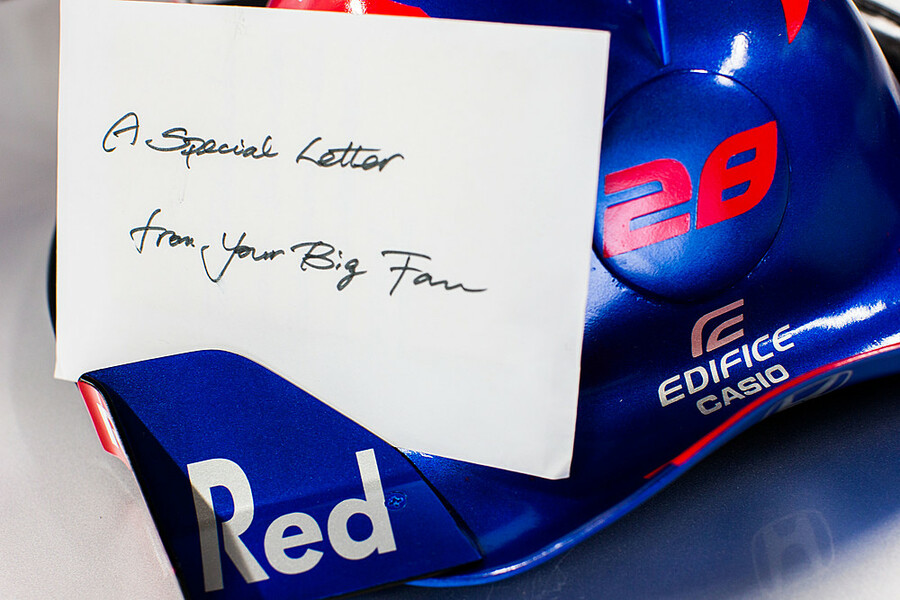 A Special Letter
from your Big Fan
28
EDIFICE
CASIO
Red